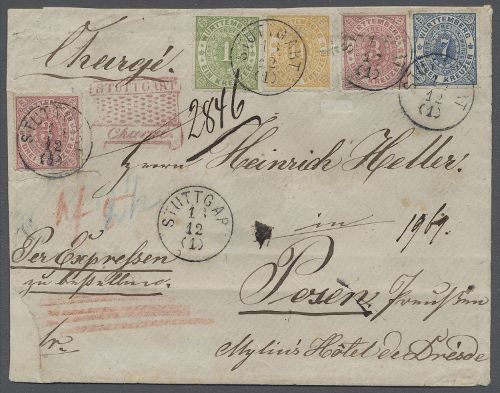 Chargé.
WÜRTTEMBERG 1
WÜRTTEMBERG
WÜRTTEMBERG 3
WÜRTTEMBERG 7
STUTTGART
12
(1)
STUTTGART
Chargé
2846
Herrn Heinrich Heller.
STUTTGART
13
12
(1)
in 1969.
Per Expressen
zu bestellen.
Posen, Preussen
fr.
Mylius Hôtel de Dresde